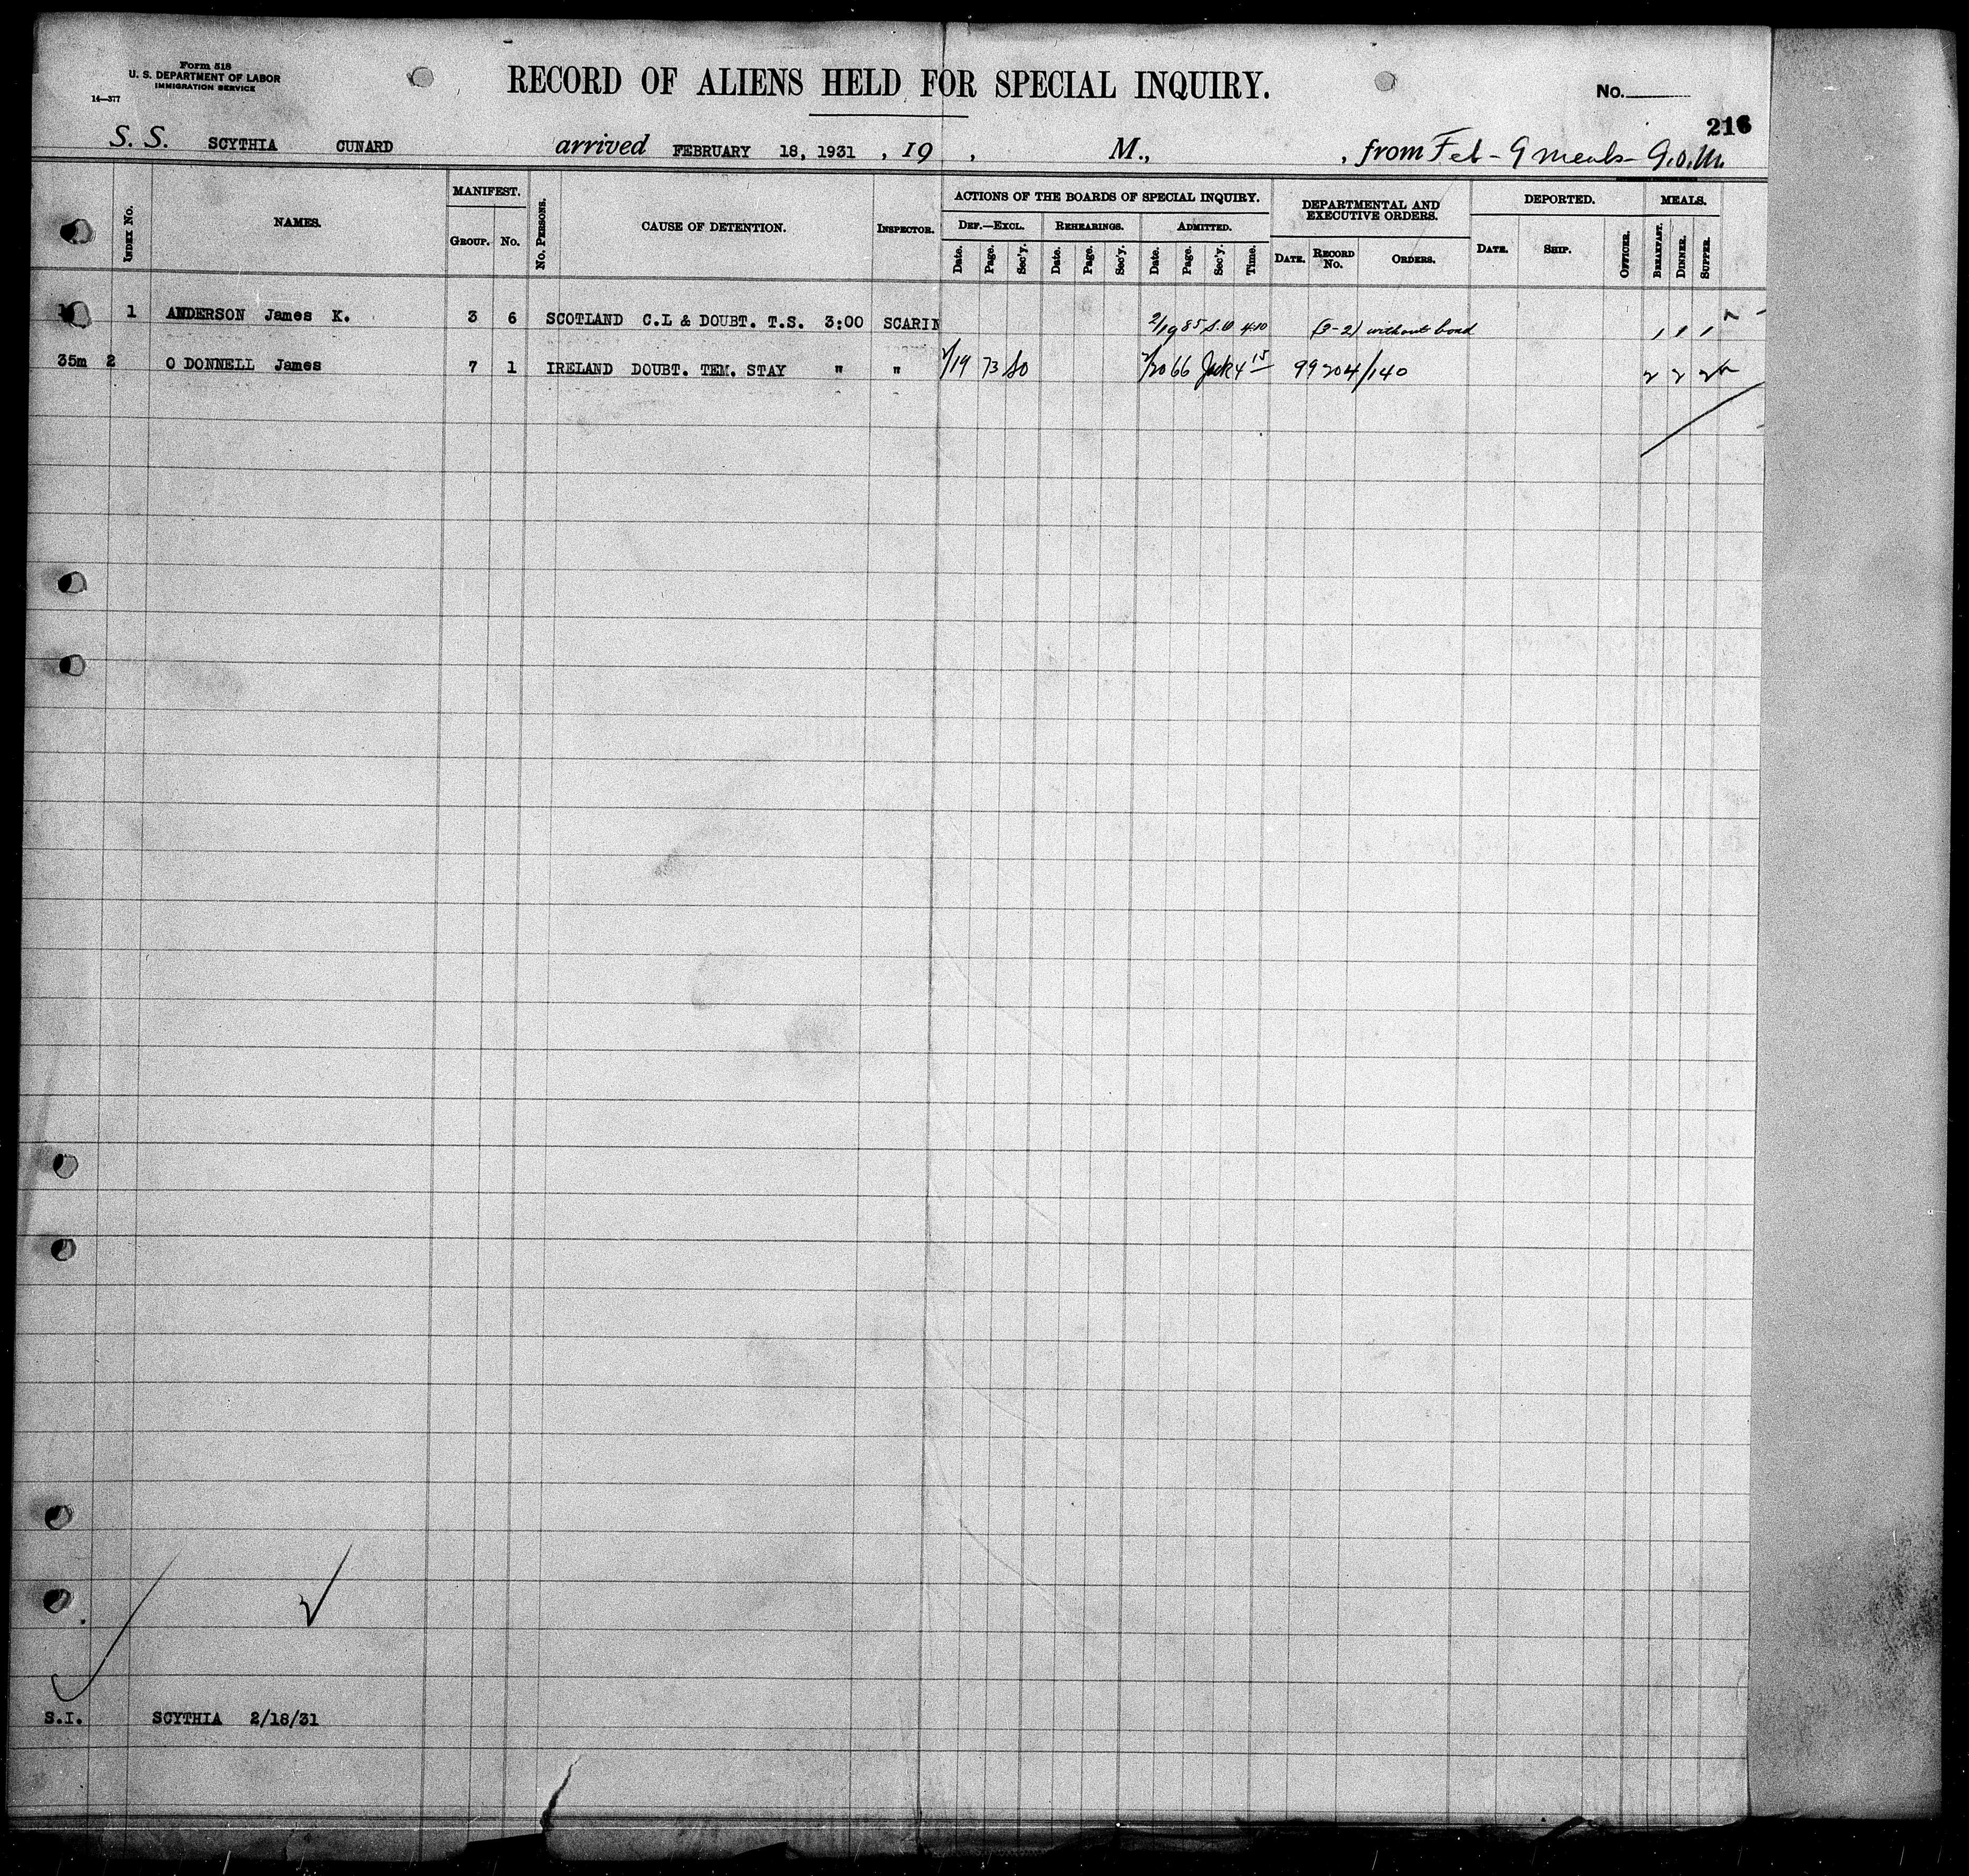 Form 518
U. S. DEPARTMENT OF LABOR
IMMIGRATION SERVICE
14—377
RECORD OF ALIENS HELD FOR SPECIAL INQUIRY.
No.
216
S. S. SCYTHIA CUNARD arrived FEBRUARY 18, 1931 , 19 , M., , from Feb - 9 meals - G.O.M.
INDEX No. NAMES. MANIFEST. GROUP. No. No. PERSONS. CAUSE OF DETENTION. INSPECTOR. ACTIONS OF THE BOARDS OF SPECIAL INQUIRY. DEPARTMENTAL AND EXECUTIVE ORDERS. DEPORTED. MEALS.
DEF.—EXCL. REHEARINGS. ADMITTED.
Date. Page. Sec'y. Date. Page. Sec'y. Date. Page. Sec'y. Time. DATE. RECORD No. ORDERS. DATE. SHIP. OFFICER. BREAKFAST. DINNER. SUPPER.
1 ANDERSON James K. 3 6 SCOTLAND C.L & DOUBT. T.S. 3:00 SCARIN 2/19 85 S.O 4:10 (3-2) without bond 1 1 1
35m 2 O DONNELL James 7 1 IRELAND DOUBT. TEM. STAY " " 2/19 73 SO 2/20 66 4 15 99204/140 2 2 2
S.I. SCYTHIA 2/18/31